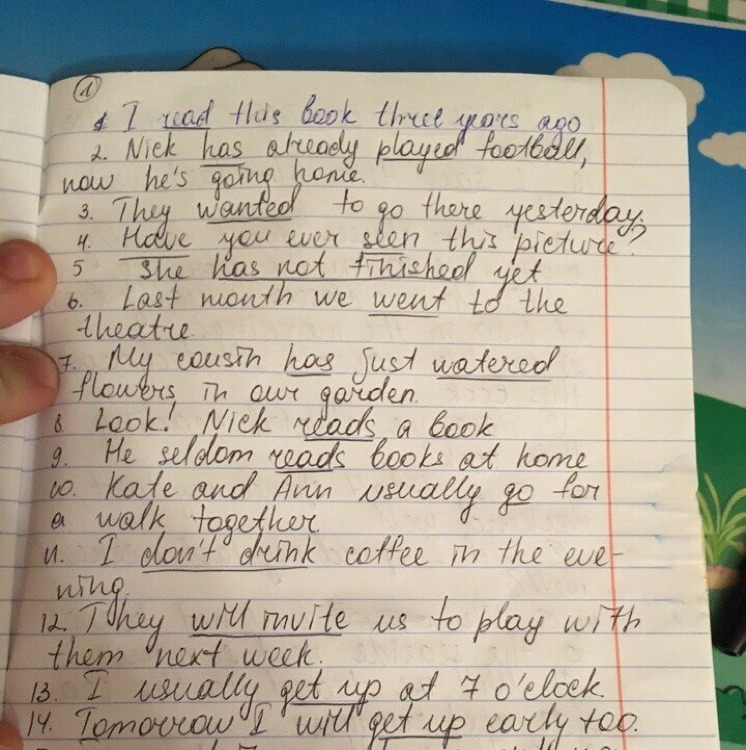 1
1 I read this book three years ago
2. Nick has already played football,
now he's going home.
3. They wanted to go there yesterday.
4. Have you ever seen this picture?
5 She has not finished yet
6. Last month we went to the
theatre.
7. My cousin has just watered
flowers in our garden.
8. Look! Nick reads a book
9. He seldom reads books at home
10. Kate and Ann usually go for
a walk together.
11. I don't drink coffee in the eve-
ning.
12. They will invite us to play with
them next week.
13. I usually get up at 7 o'clock.
14. Tomorrow I will get up early too.